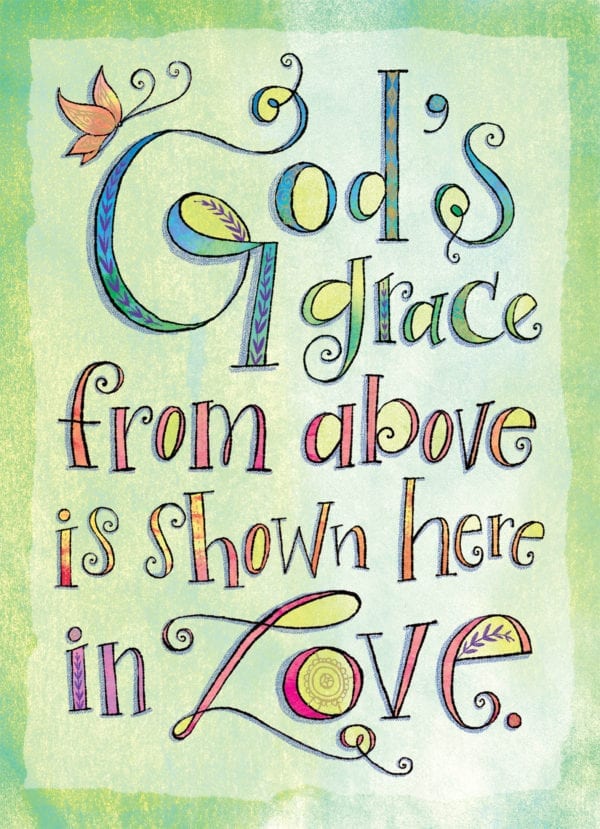 God's
grace
from above
is shown here
in Love.